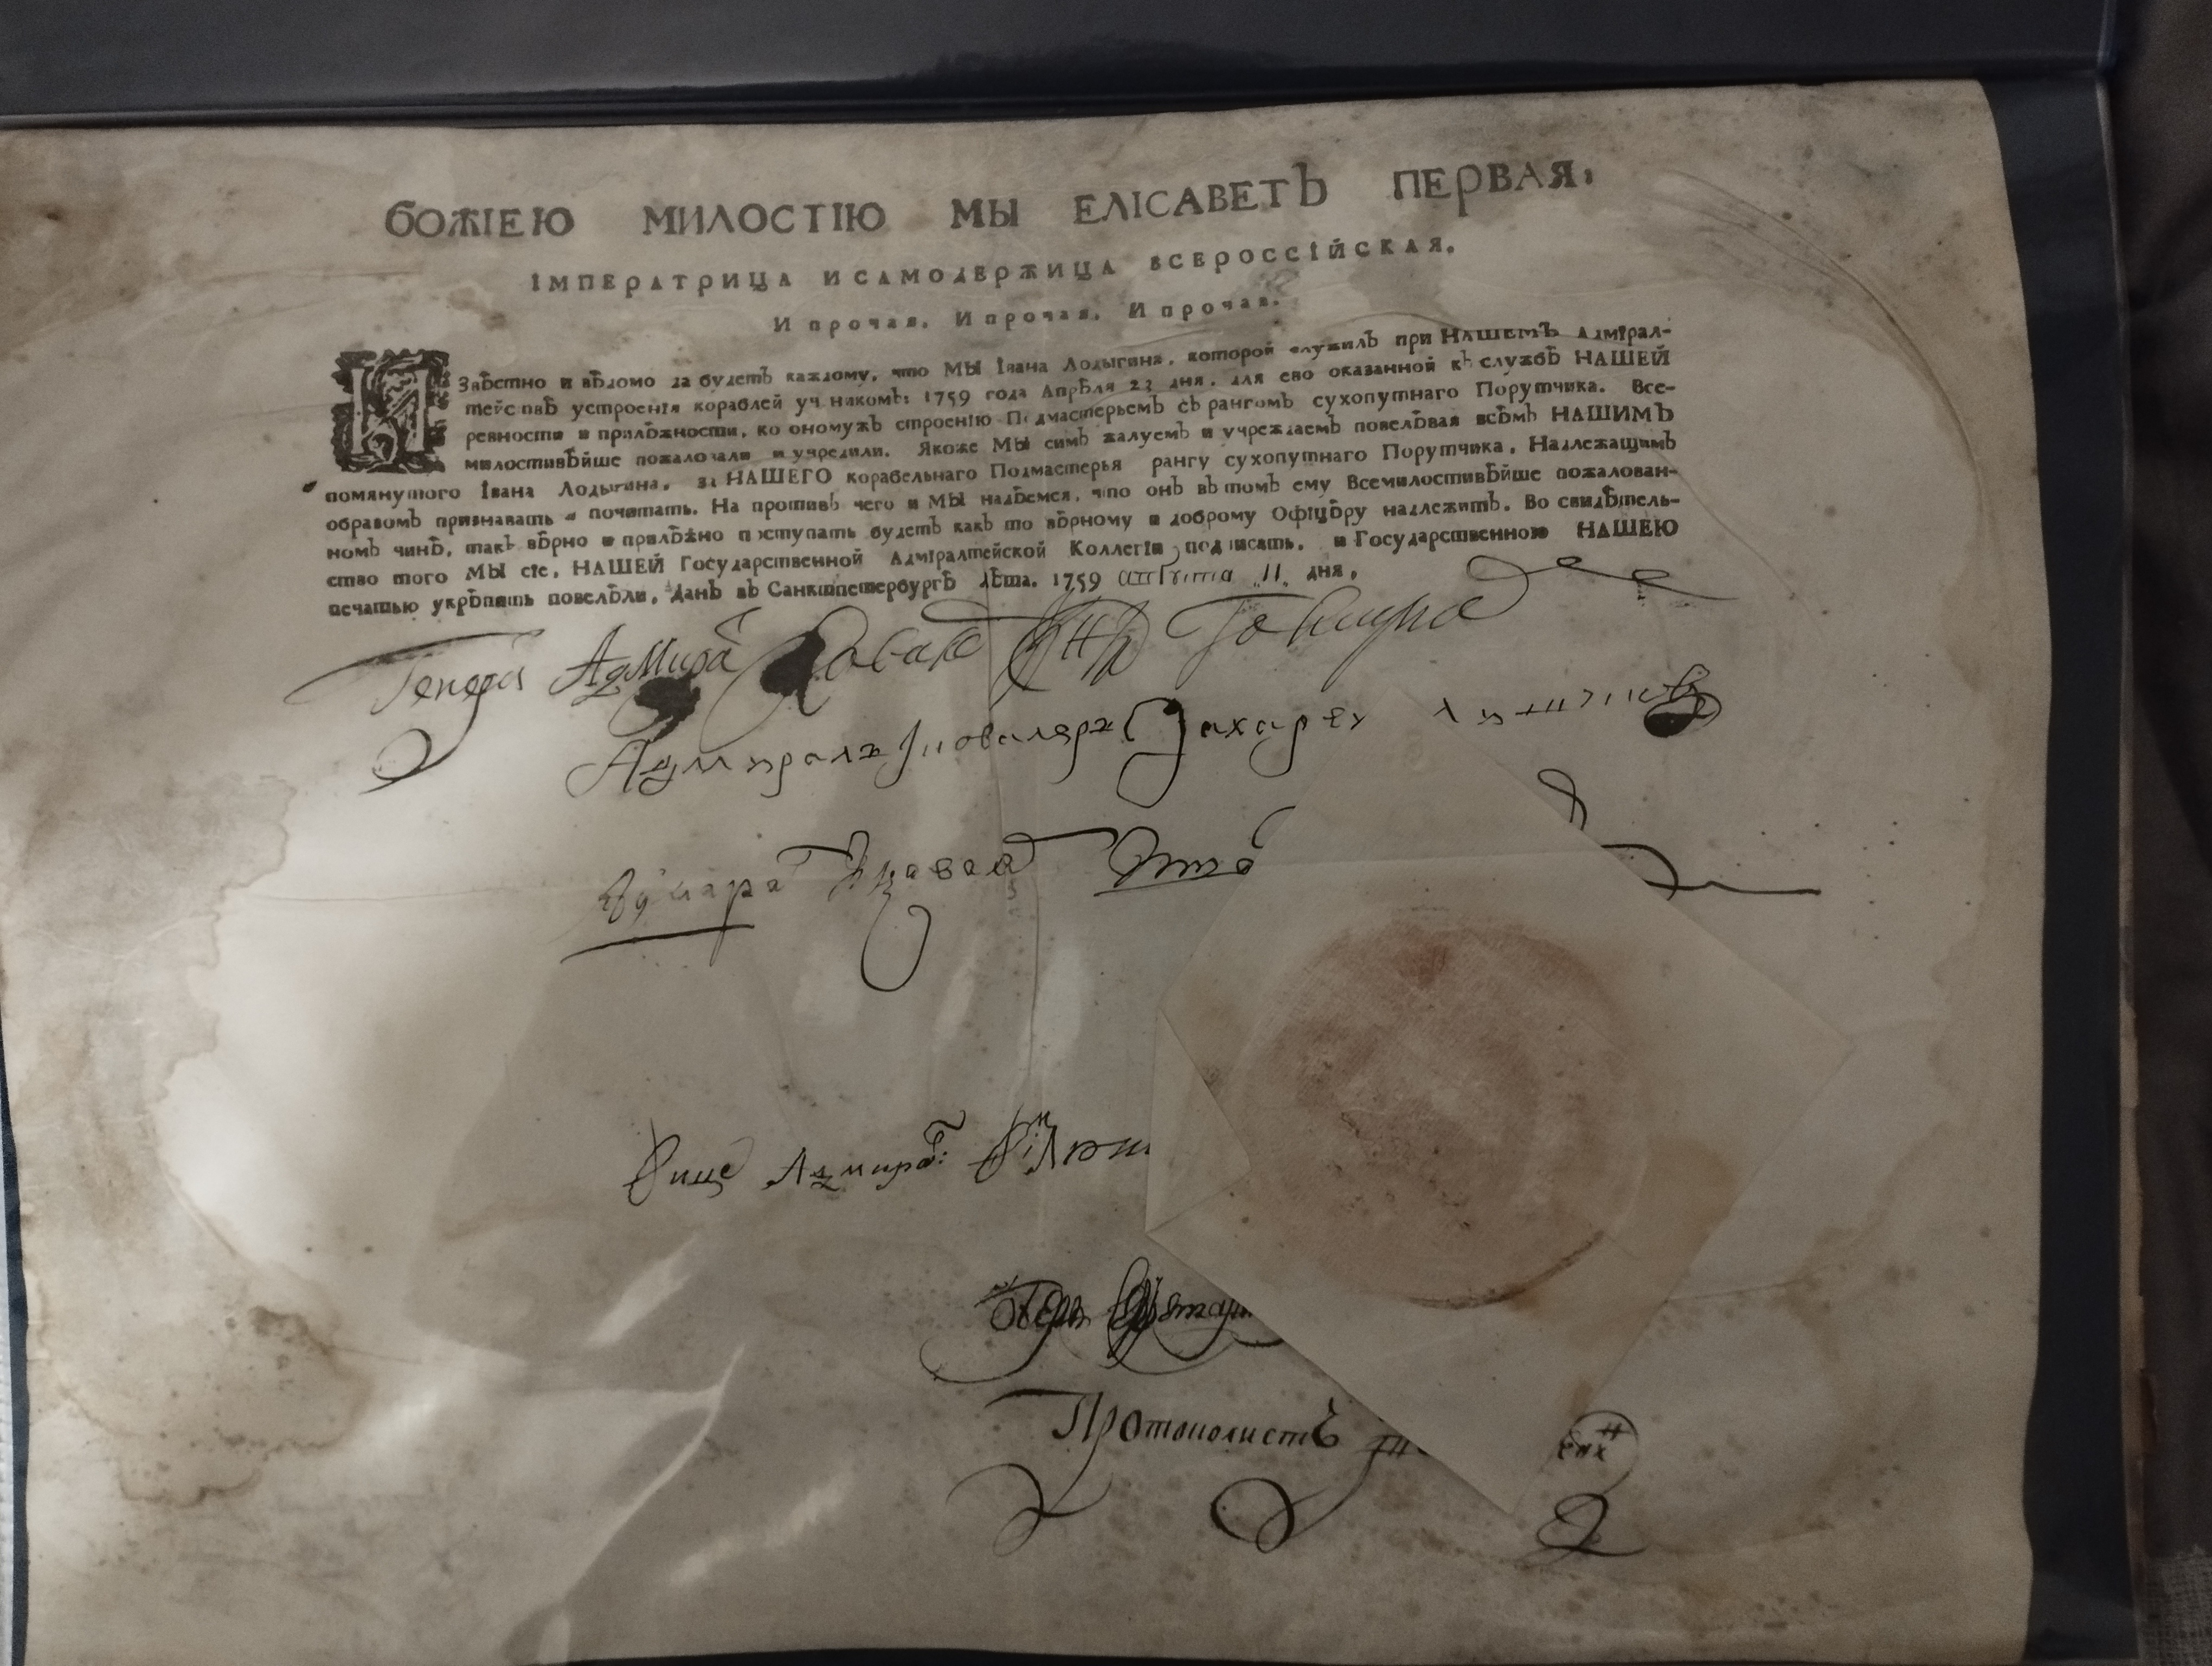 БОЖІЕЮ МИЛОСТІЮ МЫ ЕЛІСАВЕТЪ ПЕРВАЯ,
ІМПЕРАТРИЦА И САМОДЕРЖИЦА ВСЕРОССІЙСКАЯ,
И прочая, И прочая, И прочая.
ИЗвѣстно и вѣдомо да будетъ каждому, что МЫ Івана Лодыгина, которой служилъ при НАШЕМЪ Адмірал-
тействѣ устроенія кораблей ученикомъ; 1759 года Апрѣля 23 дня, для его оказанной къ службѣ НАШЕЙ
ревности и прилѣжности, ко ономужъ строенію Подмастерьемъ съ рангомъ сухопутнаго Порутчика. Все-
милостивѣйше пожаловали и учредили. Якоже МЫ симъ жалуемъ и учреждаемъ повелѣвая всѣмъ НАШИМЪ
помянутого Івана Лодыгина, за НАШЕГО корабельнаго Подмастерья рангу сухопутнаго Порутчика, Надлежащимъ
образомъ признавать и почитать. На противъ чего и МЫ надѣемся, что онъ въ томъ ему Всемилостивѣйше пожалован-
номъ чинѣ, такъ вѣрно и прилѣжно поступать будетъ какъ то вѣрному и доброму Офіцѣру надлежитъ. Во свидѣтель-
ство того МЫ сіе, НАШЕЙ Государственной Адміралтейской Коллегіи подписать, и Государственною НАШЕЮ
печатью укрѣпить повелѣли, Данъ въ Санктпетербургѣ лѣта. 1759 августа 11 дня,
Генера Адмира Голицына
Адмиралъ Захаръ
Вице Адмира:
Протоколистъ